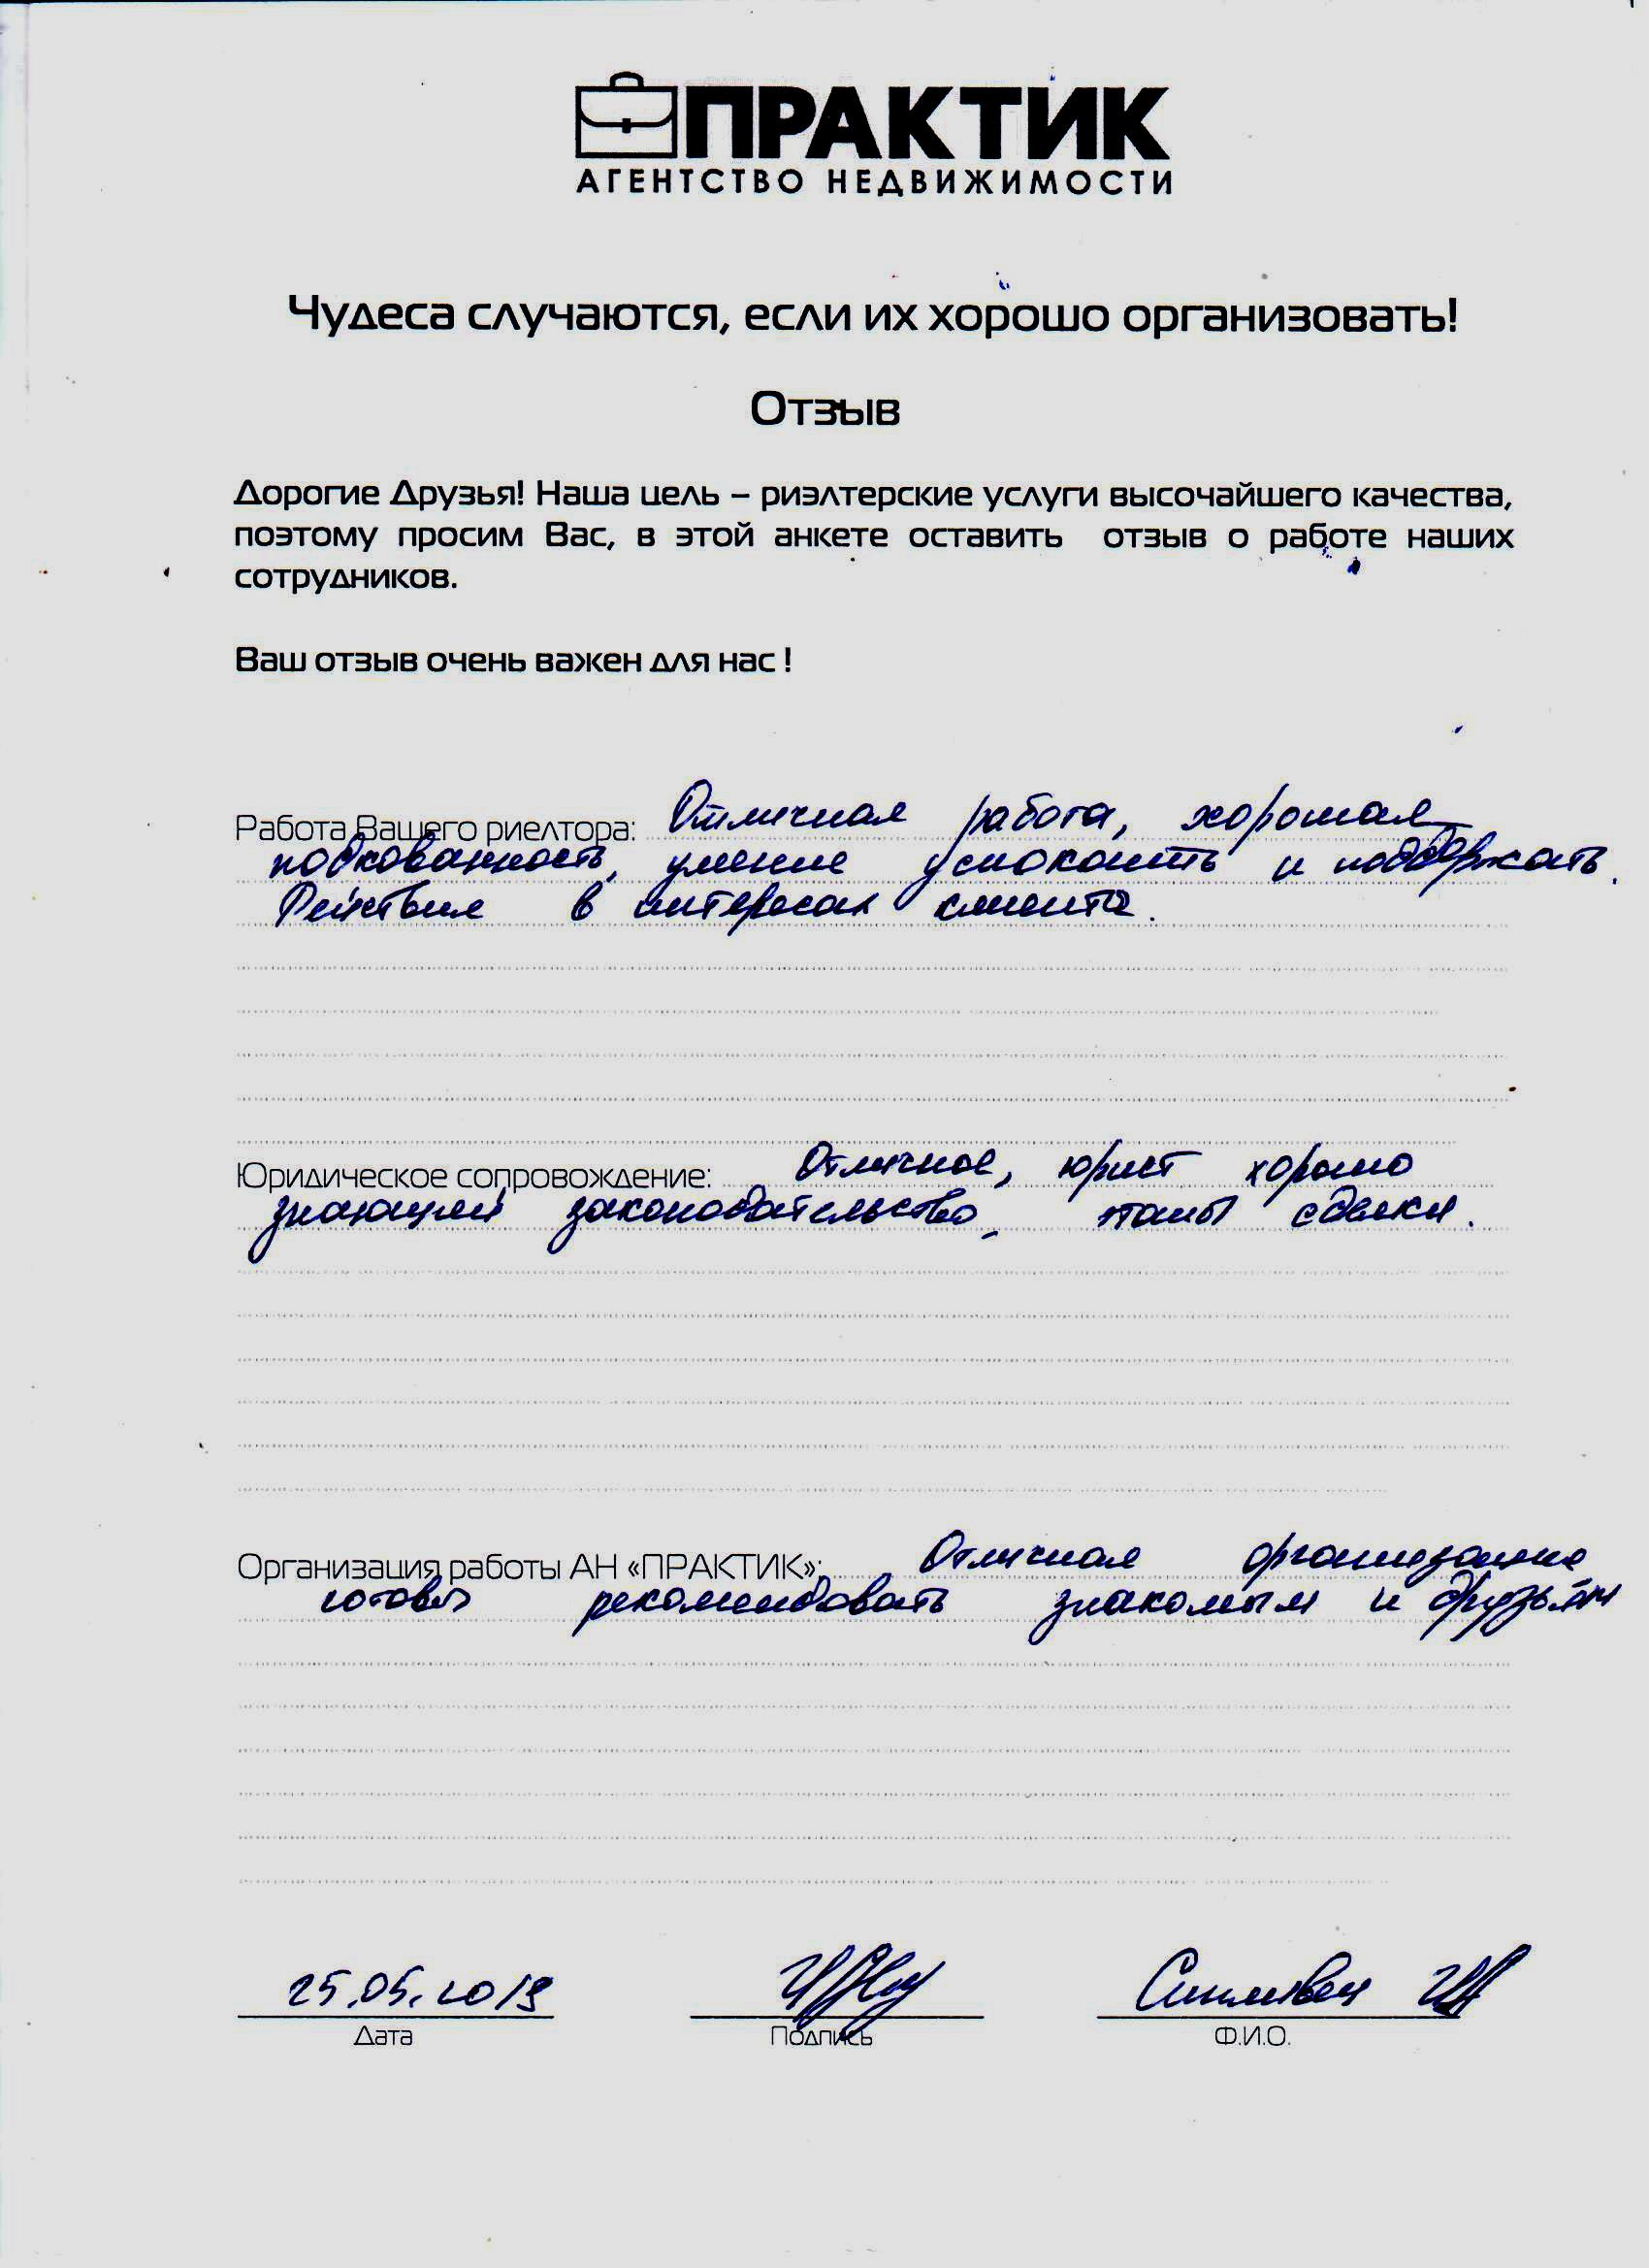 ПРАКТИК
АГЕНТСТВО НЕДВИЖИМОСТИ
Чудеса случаются, если их хорошо организовать!
Отзыв
Дорогие Друзья! Наша цель – риэлтерские услуги высочайшего качества,
поэтому просим Вас, в этой анкете оставить отзыв о работе наших
сотрудников.
Ваш отзыв очень важен для нас !
Работа Вашего риелтора: Отличная работа, хорошая
подкованность, умение успокоить и поддержать.
Действия в интересах клиента.
Юридическое сопровождение: Отличное, юрист хорошо
знающий законодательство, этапы сделки.
Организация работы АН «ПРАКТИК»: Отличная организация
готовы рекомендовать знакомым и друзьям
25.05.2019
Дата
Подпись
Ф.И.О.